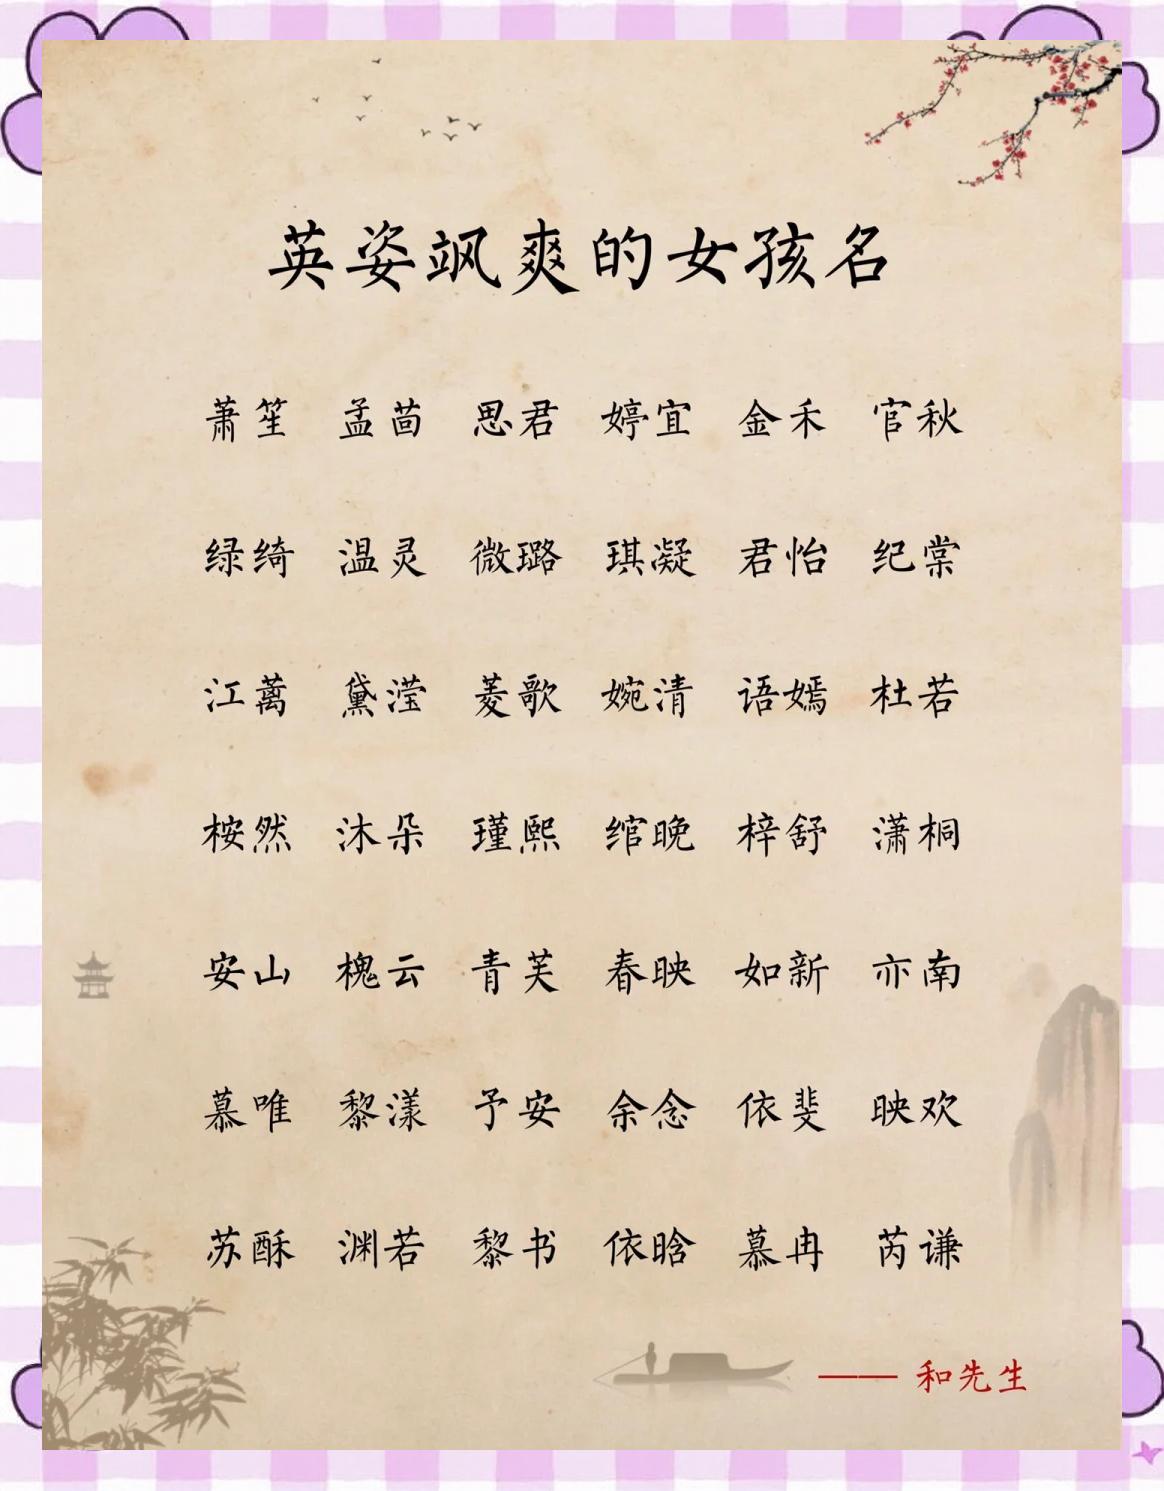 英姿飒爽的女孩名
萧笙 孟茴 思君 婷宜 金禾 官秋
绿绮 温灵 微璐 琪凝 君怡 纪棠
江蓠 黛滢 菱歌 婉清 语嫣 杜若
桉然 沐朵 瑾熙 绾晚 梓舒 潇桐
安山 槐云 青芙 春映 如新 亦南
慕唯 黎漾 予安 余念 依斐 映欢
苏酥 渊若 黎书 依晗 慕冉 芮谦
—— 和先生